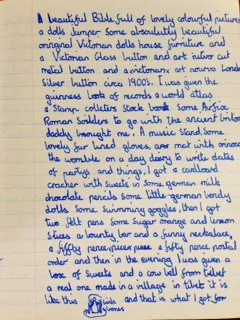 A beautiful Bible full of lovely colourful pictures
a dolls Jumper Some absolutly beautiful
original Victorian dolls house furniture and
a Victorian Glass button and art nitrov cut
metal button and a victorian art norvo London
Silver button circa 1900s. I was given the
guinness book of records a world atlas
a Stamp colleters Stock book Some Airfix
Roman Soldiers to go with the ancient briton
daddy brought me. A music Stand, Some
lovely fur lined gloves, a mat with orinoco
the womble on a day deary to write dates
of partys and things, I got a cardboard
cracker with sweets in some german milk
chocolate pencils Some little german bendy
dolls Some swimming goggles, then I got
two felt pens Some Sugar orange and lemon
slices a bounty bar and a funny necklace,
a fiffty pence a fifty pence postal
order and then in the evening I was given a
box of Sweets and a cow bell from tibet
a real one made in a village in tibet it is
like this and that is what I got for